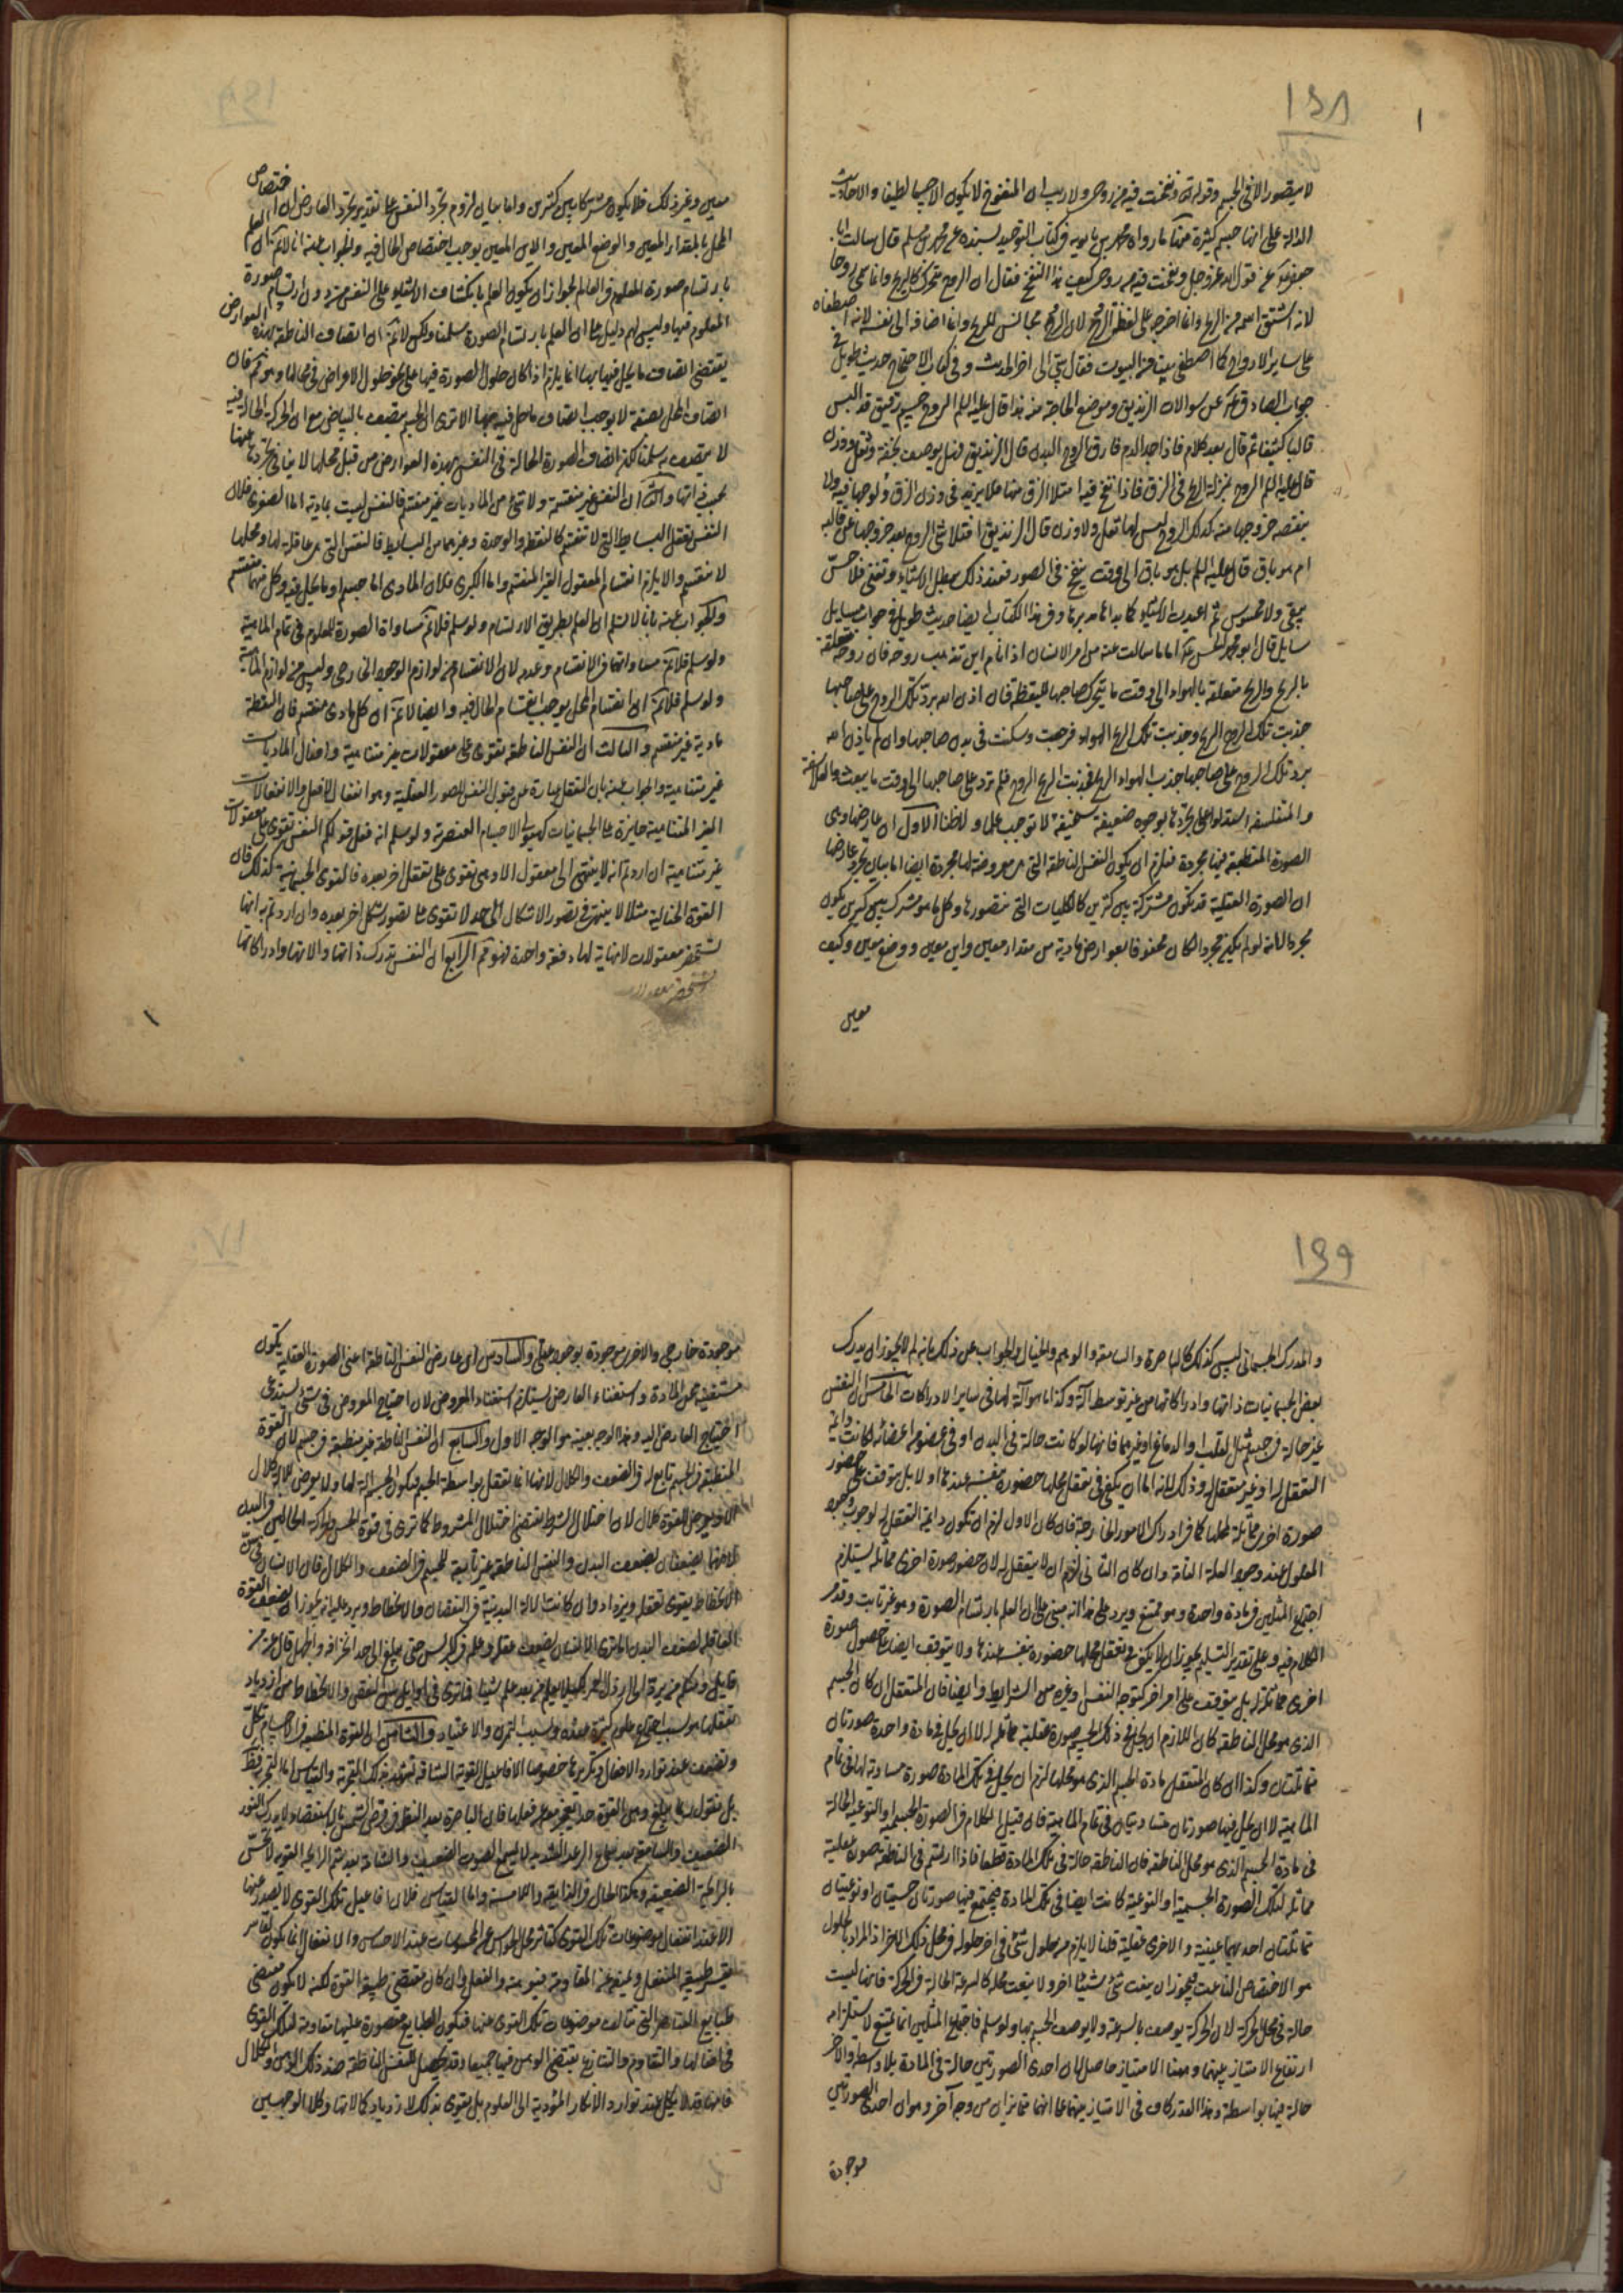 ١٦٨
١
لا يتصور الا فى الجسم وقوله تعالى ونفخت فيه من روحى ولا ريب ان المنفوخ لا يكون الا جسما لطيفا والاحاديث
الدالة على انها جسم كثيرة منها ما رواه محمد بن بابويه فى كتاب التوحيد بسنده عن محمد بن مسلم قال سالت ابا
جعفر عن قول الله عز وجل ونفخت فيه من روحى كيف هذا النفخ فقال ان الروح متحرك كالريح وانما سمى روحا
لانه اشتق اسمه من الريح وانما اخرجه على لفظ الروح لان الروح مجانس للريح وانما اضافه الى نفسه لانه اصطفاه
على ساير الارواح كما اصطفى بيتا من البيوت فقال بيتى الى اخر الحديث وفى كتاب الاحتجاج حديث طويل فى
جواب الصادق عن سوالات الزنديق وموضع الحاجة منه هذا قال عليه السلم الروح جسم رقيق قد البس
قالبا كثيفا ثم قال بعد كلام فاذا جمد الدم فارق الروح البدن قال الزنديق فهل يوصف بخفة وثقل ووزن
قال عليه السلم الروح بمنزلة الريح فى الزق فاذا نفخ فيه امتلا الزق منها فلا يزيد فى وزن الزق ولوجها فيه ولا
ينقصه خروجها منه كذلك الروح ليس لها ثقل ولا وزن قال الزنديق افتلاشى الروح بعد خروجها عن قالبه
ام هو باق قال عليه السلم بل هو باق الى وقت ينفخ فى الصور فعند ذلك تبطل الاشياء وتفنى فلا حس
يبقى ولا محسوس ثم اعيدت الاشياء كما بداها مدبرها وفى هذا الكتاب ايضا حديث طويل فى جواب مسايل
سايل قال ابو محمد الحسن اما ما سالت عنه من امر الانسان اذا نام اين تذهب روحه فان روحه متعلقة
بالريح والريح متعلقة بالهواء الى وقت ما يتحرك صاحبها لليقظة فان اذن الله برد تلك الروح على صاحبها
جذبت تلك الروح الريح وجذبت تلك الريح الهواء فرجعت وسكنت فى بدن صاحبها وان لم ياذن الله
برد تلك الروح على صاحبها جذب الهواء الريح فجذبت الريح الروح فلم ترد على صاحبها الى وقت ما يبعث والفلاسفة
والمتفلسفة استدلوا على تجردها بوجوه ضعيفة سخيفة لا توجب علما ولا ظنا الاول ان عارضها وهى
الصورة المنطبعة فيها مجردة فيلزم ان يكون النفس الناطقة التى هى معروضة لها مجردة ايضا اما بيان تجرد عارضها
ان الصورة العقلية قد تكون مشتركة بين كثيرين كالكليات التى نتصورها وكل ما هو مشترك بين كثيرين يكون
مجردا لانه لو لم يكن مجردا لكان محفوفا بعوارض مادية من مقدار معين واين معين ووضع معين وكيف
معين
معين وغير ذلك فلا يكون مشتركا بين كثيرين واما بيان لزوم تجرد النفس على تقدير تجرد العارض ان اختصاص
المحل بالمقدار المعين والوضع المعين والاين المعين يوجب اختصاص الحال فيه والجواب عنه انا لا نم ان العلم
بارتسام صورة المعلوم فى العالم لجواز ان يكون العلم بانكشاف الاشياء على النفس من دون ارتسام صورة
المعلوم فيها وليس لهم دليل على ان العلم بارتسام الصورة سلمنا ولكن لا نم ان اتصاف الناطقة بهذه العوارض
يقتضى اتصاف ما يحل فيها بها انما يلزم اذا كان حلول الصورة فيها على نحو حلول الاعراض فى محالها وهو مم فان
اتصاف المحل بصفة لا يوجب اتصاف ما حل فيه بها الا ترى ان الجسم يتصف بالبياض مع ان الحركة الحالة فيه
لا يتصف به سلمنا لكن اتصاف الصورة الحالة فى النفس بهذه العوارض من قبل محلها لا ينافى تجردها عنها
بحسب ذاتها والثانى ان النفس غير منقسمة ولا شئ من الماديات غير منقسم فالنفس ليست بمادية اما الصغرى فلان
النفس تعقل البسايط التى لا تنقسم كالنقطة والوحدة وغيرهما من البسايط فالنفس التى هى عاقلة لها ومحلها
لا تنقسم والا يلزم انقسام المعقول الغير المنقسم واما الكبرى فلان المادى اما جسم او ما يحل فيه وكل منهما منقسم
والجواب عنه بانا لا نسلم ان العلم بطريق الارتسام ولو سلم فلا نم مساواة الصورة للمعلوم فى تمام الماهية
ولو سلم فلا نم مساواتهما فى الانقسام وعدمه لان الانقسام من لوازم الوجود الخارجى وليس من لوازم الماهية
ولو سلم فلا نم ان انقسام المحل يوجب انقسام الحال فيه وايضا لا نم ان كل مادى منقسم فان النقطة
مادية غير منقسم والثالث ان النفس الناطقة تقوى على معقولات غير متناهية وافعال الماديات
غير متناهية والجواب عنه بان التعقل عبارة عن قبول النفس للصور العقلية وهو انفعال لا فعل والانفعالات
الغير المتناهية جايزة على الجسمانيات كهيولى الاجسام العنصرية ولو سلم انه فعل فقولكم النفس تقوى على معقولات
غير متناهية ان اردتم انه لا ينتهى الى معقول الا وهى تقوى على تعقل اخر بعده فالقوى الجسمانية كذلك فان
القوة الخيالية مثلا لا ينتهى فى تصور الاشكال الى حد لا تقوى على تصور شكل اخر بعده وان اردتم به انها
تستحضر معقولات لا نهاية لها دفعة واحدة فهو مم الرابع ان النفس تدرك ذاتها والاتها وادراكاتها
١
١٦٩
والمدرك الجسمانى ليس كذلك كالباصرة والسامعة والوهم والخيال والجواب عن ذلك بانه لم لا يجوز ان يدرك
بعض الجسمانيات ذاتها وادراكاتها من غير توسط آلة وكذا ما هو آلة لها فى ساير الادراكات الخامس ان النفس
غير حالة فى جسم مثل القلب والدماغ او غيرهما فانها لو كانت حالة فى البدن او فى عضو من اعضائه لكانت دائمة
التعقل له او غير متعقلة له وذلك لانه اما ان يكفى فى تعقل محلها حضوره بنفسه عندها او لا بل يتوقف على حضور
صورة اخرى مماثلة لمحلها كما فى ادراك الامور الخارجة فان كان الاول لزم ان تكون دائمة التعقل له لوجوب وجود
المعلول عند وجود العلة التامة وان كان الثانى لزم ان لا يتعقل له لان حضور صورة اخرى مماثلة يستلزم
اجتماع المثلين فى مادة واحدة وهو ممتنع ويرد على هذا انه مبنى على ان العلم بارتسام الصورة وهو غير ثابت وقد مر
الكلام فيه وعلى تقدير التسليم يجوز ان لا يكفى فى تعقل محلها حضوره بنفسه عندها ولا يتوقف ايضا على حصول صورة
اخرى مماثلة له بل يتوقف على امر اخر كتوجه النفس او غيره من الشرايط وايضا فان المتعقل ان كان الجسم
الذى هو محل الناطقة كان اللازم ان يحل فى ذلك الجسم صورة عقلية مماثلة له لا ان يحل فى مادة واحدة صورتان
متماثلتان وكذا ان كان المتعقل مادة الجسم الذى هو محلها لزم ان يحل فى تلك المادة صورة مساوية لها فى تمام
الماهية لا ان يحل فيها صورتان متساويتان فى تمام الماهية فان قيل الكلام فى الصورة الجسمية او النوعية الحالة
فى مادة الجسم الذى هو محل الناطقة فان الناطقة حالة فى تلك المادة قطعا فاذا ارتسم فى الناطقة صورة عقلية
مماثلة لتلك الصورة الجسمية او النوعية كانت ايضا فى تلك المادة فيجتمع فيها صورتان جسميتان او نوعيتان
متماثلتان احديهما عينية والاخرى عقلية قلنا لا يلزم من حلول شئ فى اخر حلوله فى محل ذلك الاخر اذ المراد بالحلول
هو الاختصاص الناعت فيجوز ان ينعت شئ شيئا اخر ولا ينعت محله كالسرعة الحالة فى الحركة فانها ليست
حالة فى محل الحركة لان الحركة يوصف بالسرعة ولا يوصف الجسم بها ولو سلم فاجتماع المثلين انما يمتنع لاستلزامه
ارتفاع الامتياز بينهما وههنا الامتياز حاصل لان احدى الصورتين حالة فى المادة بلا واسطة والاخر
حالة فيها بواسطة وهذا القدر كاف فى الامتياز بينهما على انهما متمايزان من وجه آخر وهو ان احدى الصورتين
موجودة
موجودة خارجى والاخرى موجودة بوجود عقلى والسادس ان عارض النفس الناطقة اعنى الصورة العقلية يكون
مستغنية عن المادة واستغناء العارض يستلزم استغناء المعروض لان احتياج المعروض فى شئ يستدعى
احتياج العارض اليه وهذا الوجه بعينه هو الوجه الاول والسابع ان النفس الناطقة غير منطبعة فى جسم لان القوة
المنطبعة فى الجسم تابع له فى الضعف والكلال لانها انما تفعل بواسطة الجسم فيكون الجسم آلة لها ولا يعرض للآلة كلال
الا ويعرض للقوة كلال لان اختلال الشرط يقتضى اختلال المشروط كما ترى فى قوة الحس والحركة الحالتين فى البدن
لانهما يضعفان بضعف البدن والنفس الناطقة غير تابعة للجسم فى الضعف والكلال فان الانسان فى سن
الانحطاط يقوى تعقله ويزداد وان كانت الآلة البدنية فى النقصان والانحطاط ويرد عليه انه يجوز ان يضعف القوة
العاقلة لضعف البدن الا ترى الانسان يضعف عقله وعلمه فى كبر السن حتى يبلغ الى حد الخرافة والجهل قال عز من
قايل ومنكم من يرد الى ارذل العمر لكيلا يعلم من بعد علم شيئا وما ترى فى اوايل سن النقص والانحطاط من ازدياد
تعقلها هو بسبب اجتماع علوم كثيرة عنده وبسبب التمرن والاعتياد والثامن ان القوة المنطبعة فى الاجسام تكل
وتضعف عند توارد الافعال وتكررها خصوصا الافاعيل القوية الشاقة تشهد بذلك التجربة والقياس اما التجربة فظ
بل نقول ربما يبلغ وهن القوة حدا يعجز معه عن فعلها فان الباصرة بعد النظر فى قرص الشمس بالاستقصاء لا يدرك النور
الضعيف والسامعة بعد سماع الرعد الشديد لا يسمع الصوت الضعيف والشامة بعد شم الرايحة القوية لا تحس
بالرايحة الضعيفة وهكذا الحال فى الذايقة واللامسة واما القياس فلان افاعيل تلك القوى لا يصدر عنها
الا عند انفعال موضوعات تلك القوى كتاثر محل الحواس عن المحسوسات عند الاحساس والانفعال انما يكون لقاسر
يقسر طبيعة المنفعل ويمنعه عن المقاومة فيوهنه والفعل وان كان مقتضى طبيعة القوة لكنه لا يكون مقتضى
طبايع العناصر التى تتالف موضوعات تلك القوى عنها فتكون الطبايع مقصورة عليها مقاومة لتلك القوى
فى افعالها والتقاوم والتنازع يقتضى الوهن فيهما جميعا وقد يحصل للنفس الناطقة ضد ذلك الوهن والكلال
فانها قد لا يكل عند توارد الافكار المؤدية الى العلوم بل يقوى بذلك لازدياد كمالاتها وكلا الوجهين